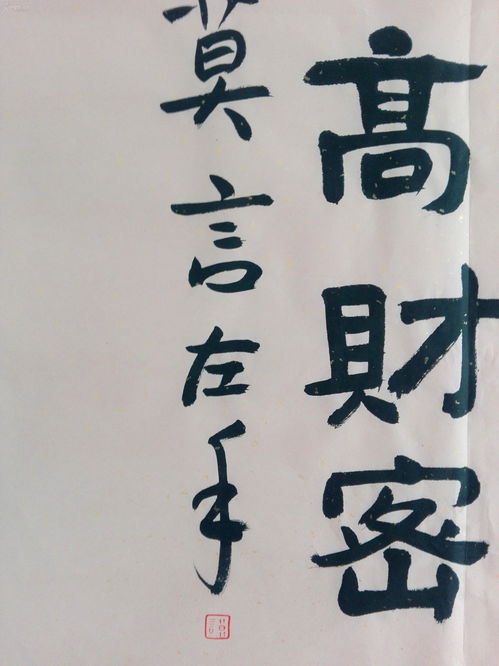 高財密
莫言左手